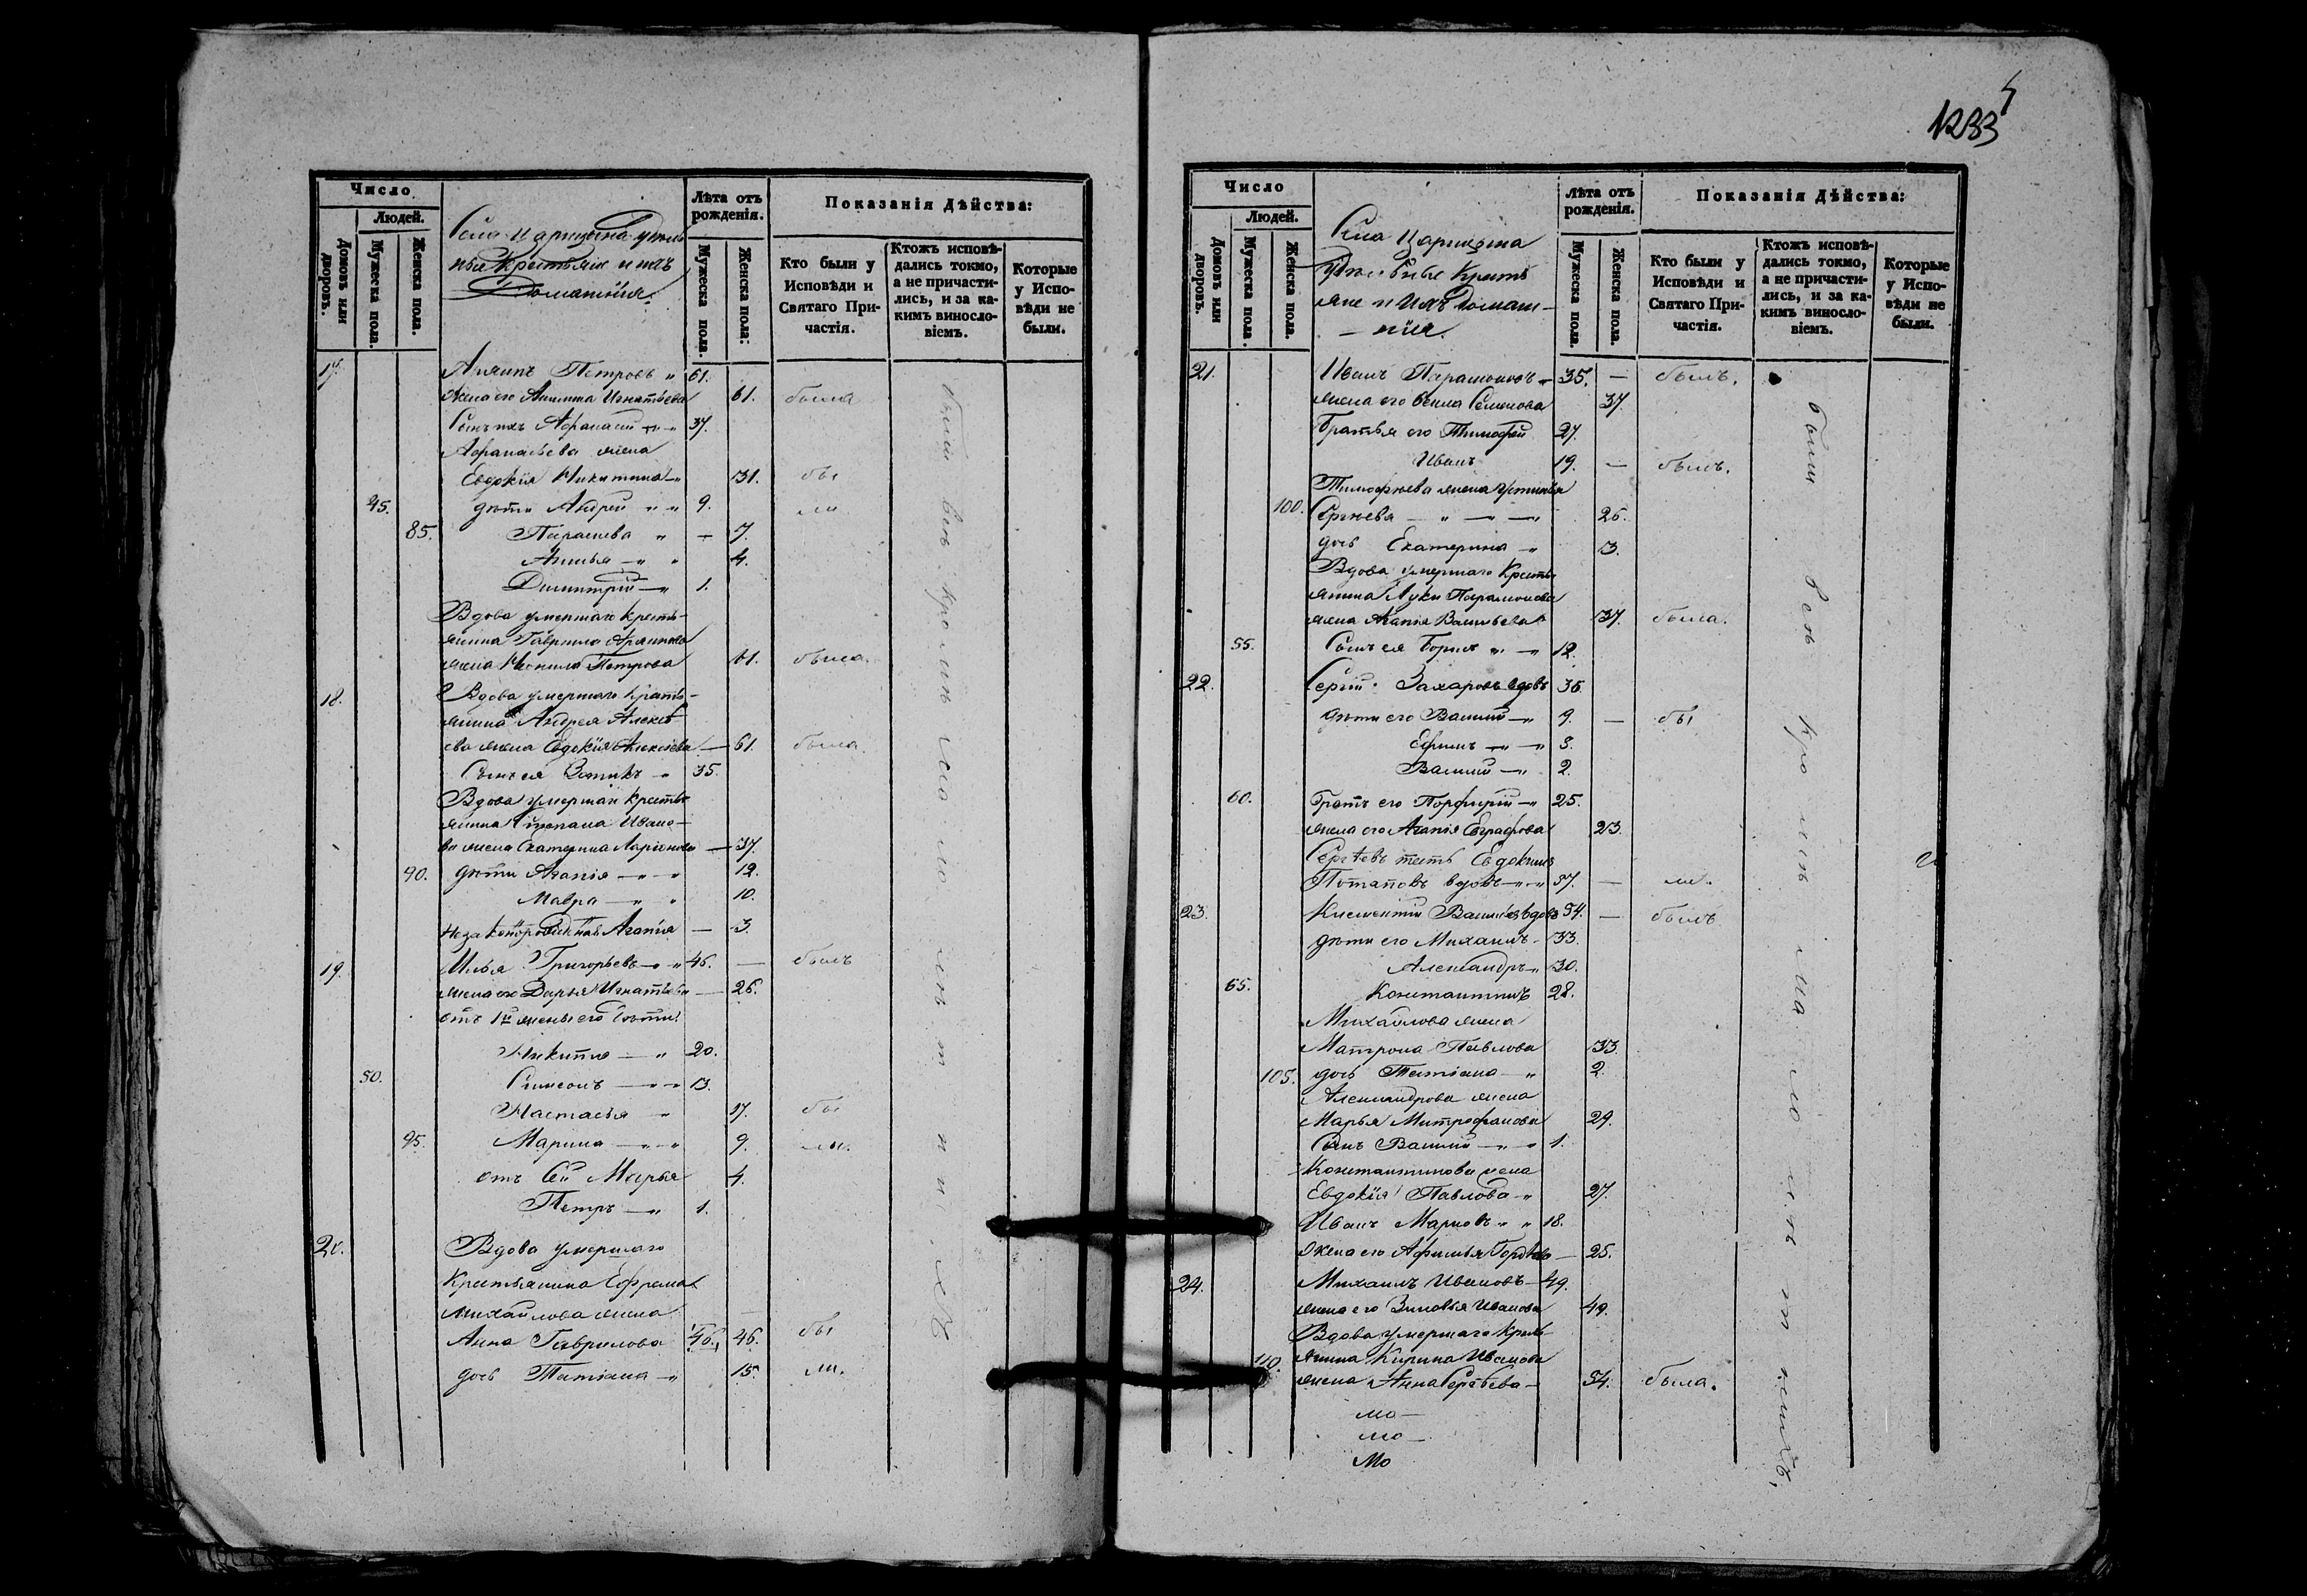 Число
Людей.
Домовъ или дворовъ.
Мужеска пола.
Женска пола.
Села Царицына удѣль
ные крестьяне и ихъ
Домашнія.
Лѣта отъ рожденія.
Мужеска пола.
Женска пола:
Показанія Дѣйства:
Кто были у Исповѣди и Святаго При-частія.
Ктожъ исповѣ-дались токмо, а не причасти-лись, и за ка-кимъ винослo-віемъ.
Которые у Испо-вѣди не были.
17. Петровъ 61.
Жена его Игнатьева 61. была
Сынъ ихъ Афанасій 37.
Афанасьева жена
Евдокія Никитина 31. бы
45. дѣти Андрей 9. ли
85. Параскева — 7.
4.
Димитрій 1.
Вдова умершаго кресть-
янина Гаврила
жена Петрова 61. была.
18. Вдова умершаго кресть-
янина Андрея Алексѣ
ева жена Евдокія Алексѣева — 61. была.
Сынъ ея 35.
Вдова умершаго кресть
янина Степана Ивано-
ва жена Екатерина Ларіонова — 37.
90. дѣти Агапія 12.
Мавра 10.
Незаконорожденная Агапія — 3.
19. Илья Григорьевъ 46. — былъ
жена его Дарья Игнатьева — 26.
отъ 1й жены его дѣти:
Никита 20.
50. Симеонъ 13.
Настасья 17. бы
95. Марина 9. ли.
отъ Марья 4.
Петръ 1.
20. Вдова умершаго
Крестьянина Ефрема
Михайлова жена
Анна Гаврилова 46. 46. бы
дочь Татіана 15. ли.
были всѣ кромѣ малолѣтнихъ
1233
Число
Людей.
Домовъ или дворовъ.
Мужеска пола.
Женска пола.
Села Царицына
Удѣльные кресть
яне и ихъ домаш-
нія.
Лѣта отъ рожденія.
Мужеска пола.
Женска пола.
Показанія Дѣйства:
Кто были у Исповѣди и Святаго При-частія.
Ктожъ исповѣ-дались токмо, а не причасти-лись, и за ка-кимъ винослo-віемъ.
Которые у Испо-вѣди не были.
21. Иванъ Парамоновъ 35. — былъ.
жена его Семенова 37.
Братья его Тимофей 27.
Иванъ 19. — былъ.
Тимофѣева жена Устинья
100. Сергѣева 26.
дочь Екатерина 3.
Вдова умершаго Кресть
янина Луки Парамонова
жена Агапія Васильева 37. была.
55. Сынъ ея Борисъ 12.
22. Сергій Захаровъ вдовъ 36.
дѣти его Василій 9. — бы
Ефимъ 3.
Василій 2.
60. Братъ его Порфирій 25.
жена его Агапія Евграфова 23.
Сергѣевъ тесть Евдокимъ
Потаповъ вдовъ 57. — ли.
23. Климентій Васильевъ вдовъ 54. — былъ
дѣти его Михаилъ 33.
Александръ 30.
65. Константинъ 28.
Михайлова жена
Матрона Павлова 33.
105. дочь Татіана 2.
Александрова жена
Марья Митрофанова 29.
Сынъ Василій 1.
Константинова жена
Евдокія Павлова 27.
Иванъ Марковъ 18.
Жена его Афимья 25.
24. Михаилъ Ивановъ 49.
жена его Зиновья Иванова 49.
Вдова умершаго Кресть-
110. янина Кирила Иванова
жена Анна Сергѣева 54. была.
мо
мо
мо
были всѣ кромѣ малолѣтнихъ,